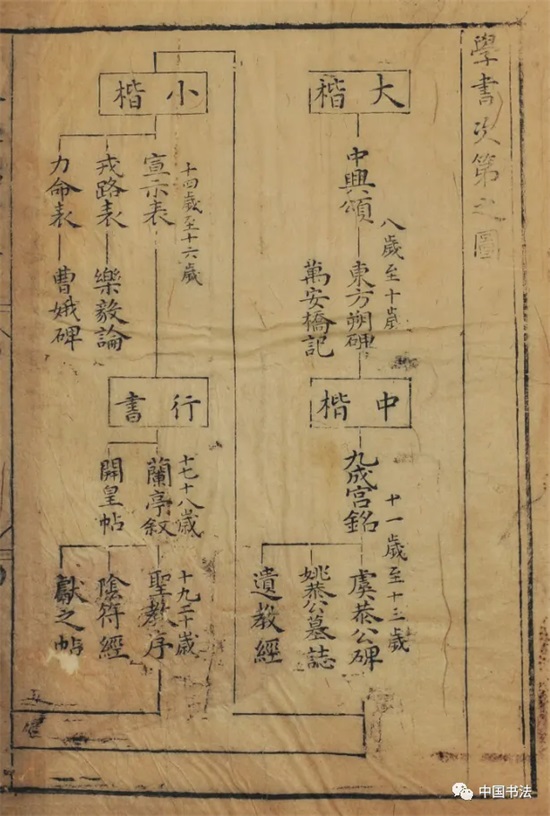 學書次第之圖
大楷
八歲至十歲
中興頌
東方朔碑
萬安橋記
中楷
十一歲至十三歲
九成宮銘
虞恭公碑
姚恭公墓誌
遺教經
小楷
十四歲至十六歲
宣示表
戎路表
樂毅論
力命表
曹娥碑
行書
十七十八歲
蘭亭敘
開皇帖
十九二十歲
聖教序
陰符經
獻之帖
中国书法